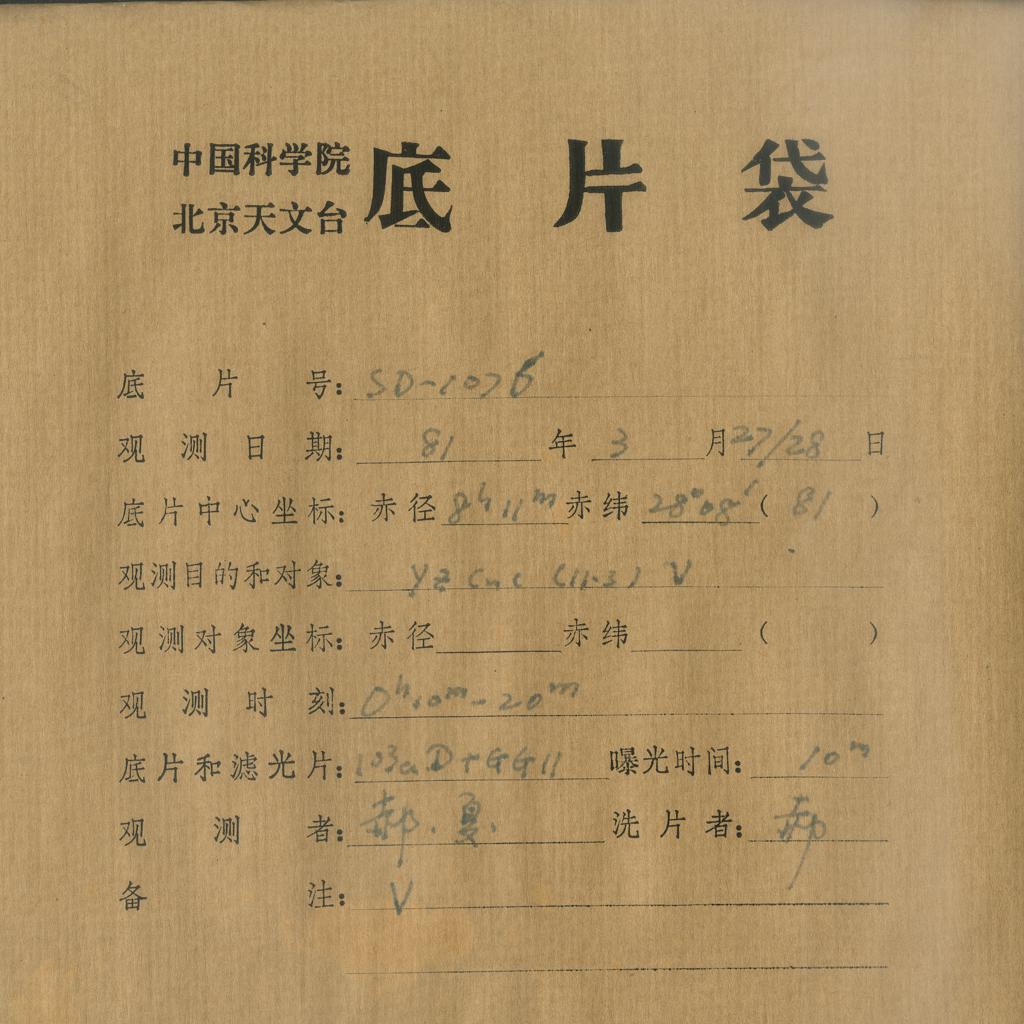 中国科学院
北京天文台
底片袋
底片号: SD-1076
观测日期: 81年3月27/28日
底片中心坐标: 赤径8h11m赤纬28°08′(81)
观测目的和对象: YZ Cnc (11.3) V
观测对象坐标: 赤径 赤纬 ( )
观测时刻: 0h10m-20m
底片和滤光片: 103aD+GG11 曝光时间: 10m
观测者: 郝.夏. 洗片者: 郝
备注: V